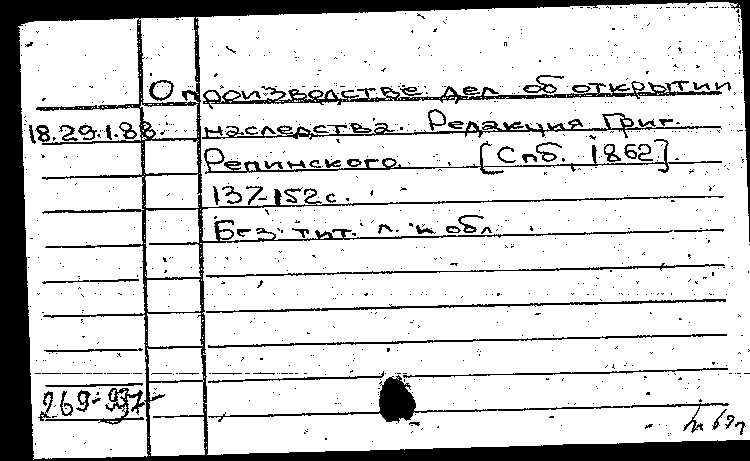 О производстве дел об открытии
18.29.1.88. наследства. Редакция Григ.
Репинского [Спб., 1862]
137-152 с.
Без тит. л. и обл.